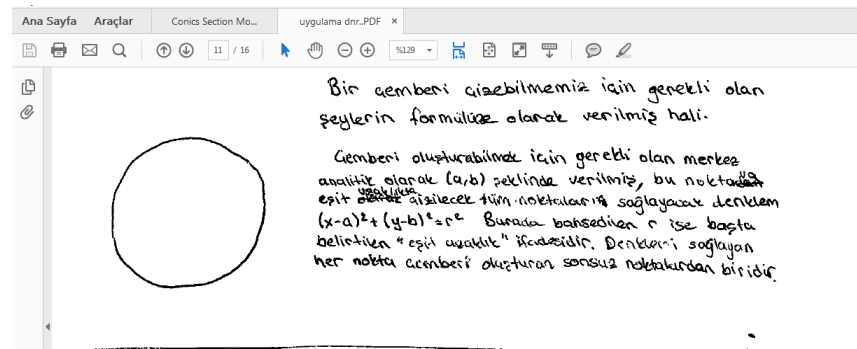 Ana Sayfa Araçlar Conics Section Mo... uygulama dnr..PDF ×
11 / 16 %129
Bir çemberi çizebilmemiz için gerekli olan
şeylerin formülüze olarak verilmiş hali.
Çemberi oluşturabilmek için gerekli olan merkez
analitik olarak (a,b) şeklinde verilmiş, bu noktaya
eşit uzaklıkta çizilecek tüm noktaların sağlayacak denklem
(x-a)²+(y-b)²=r² Burada bahsedilen r ise başta
belirtilen "eşit uzaklık" ifadesidir. Denklemi sağlayan
her nokta çemberi oluşturan sonsuz noktalardan biridir.